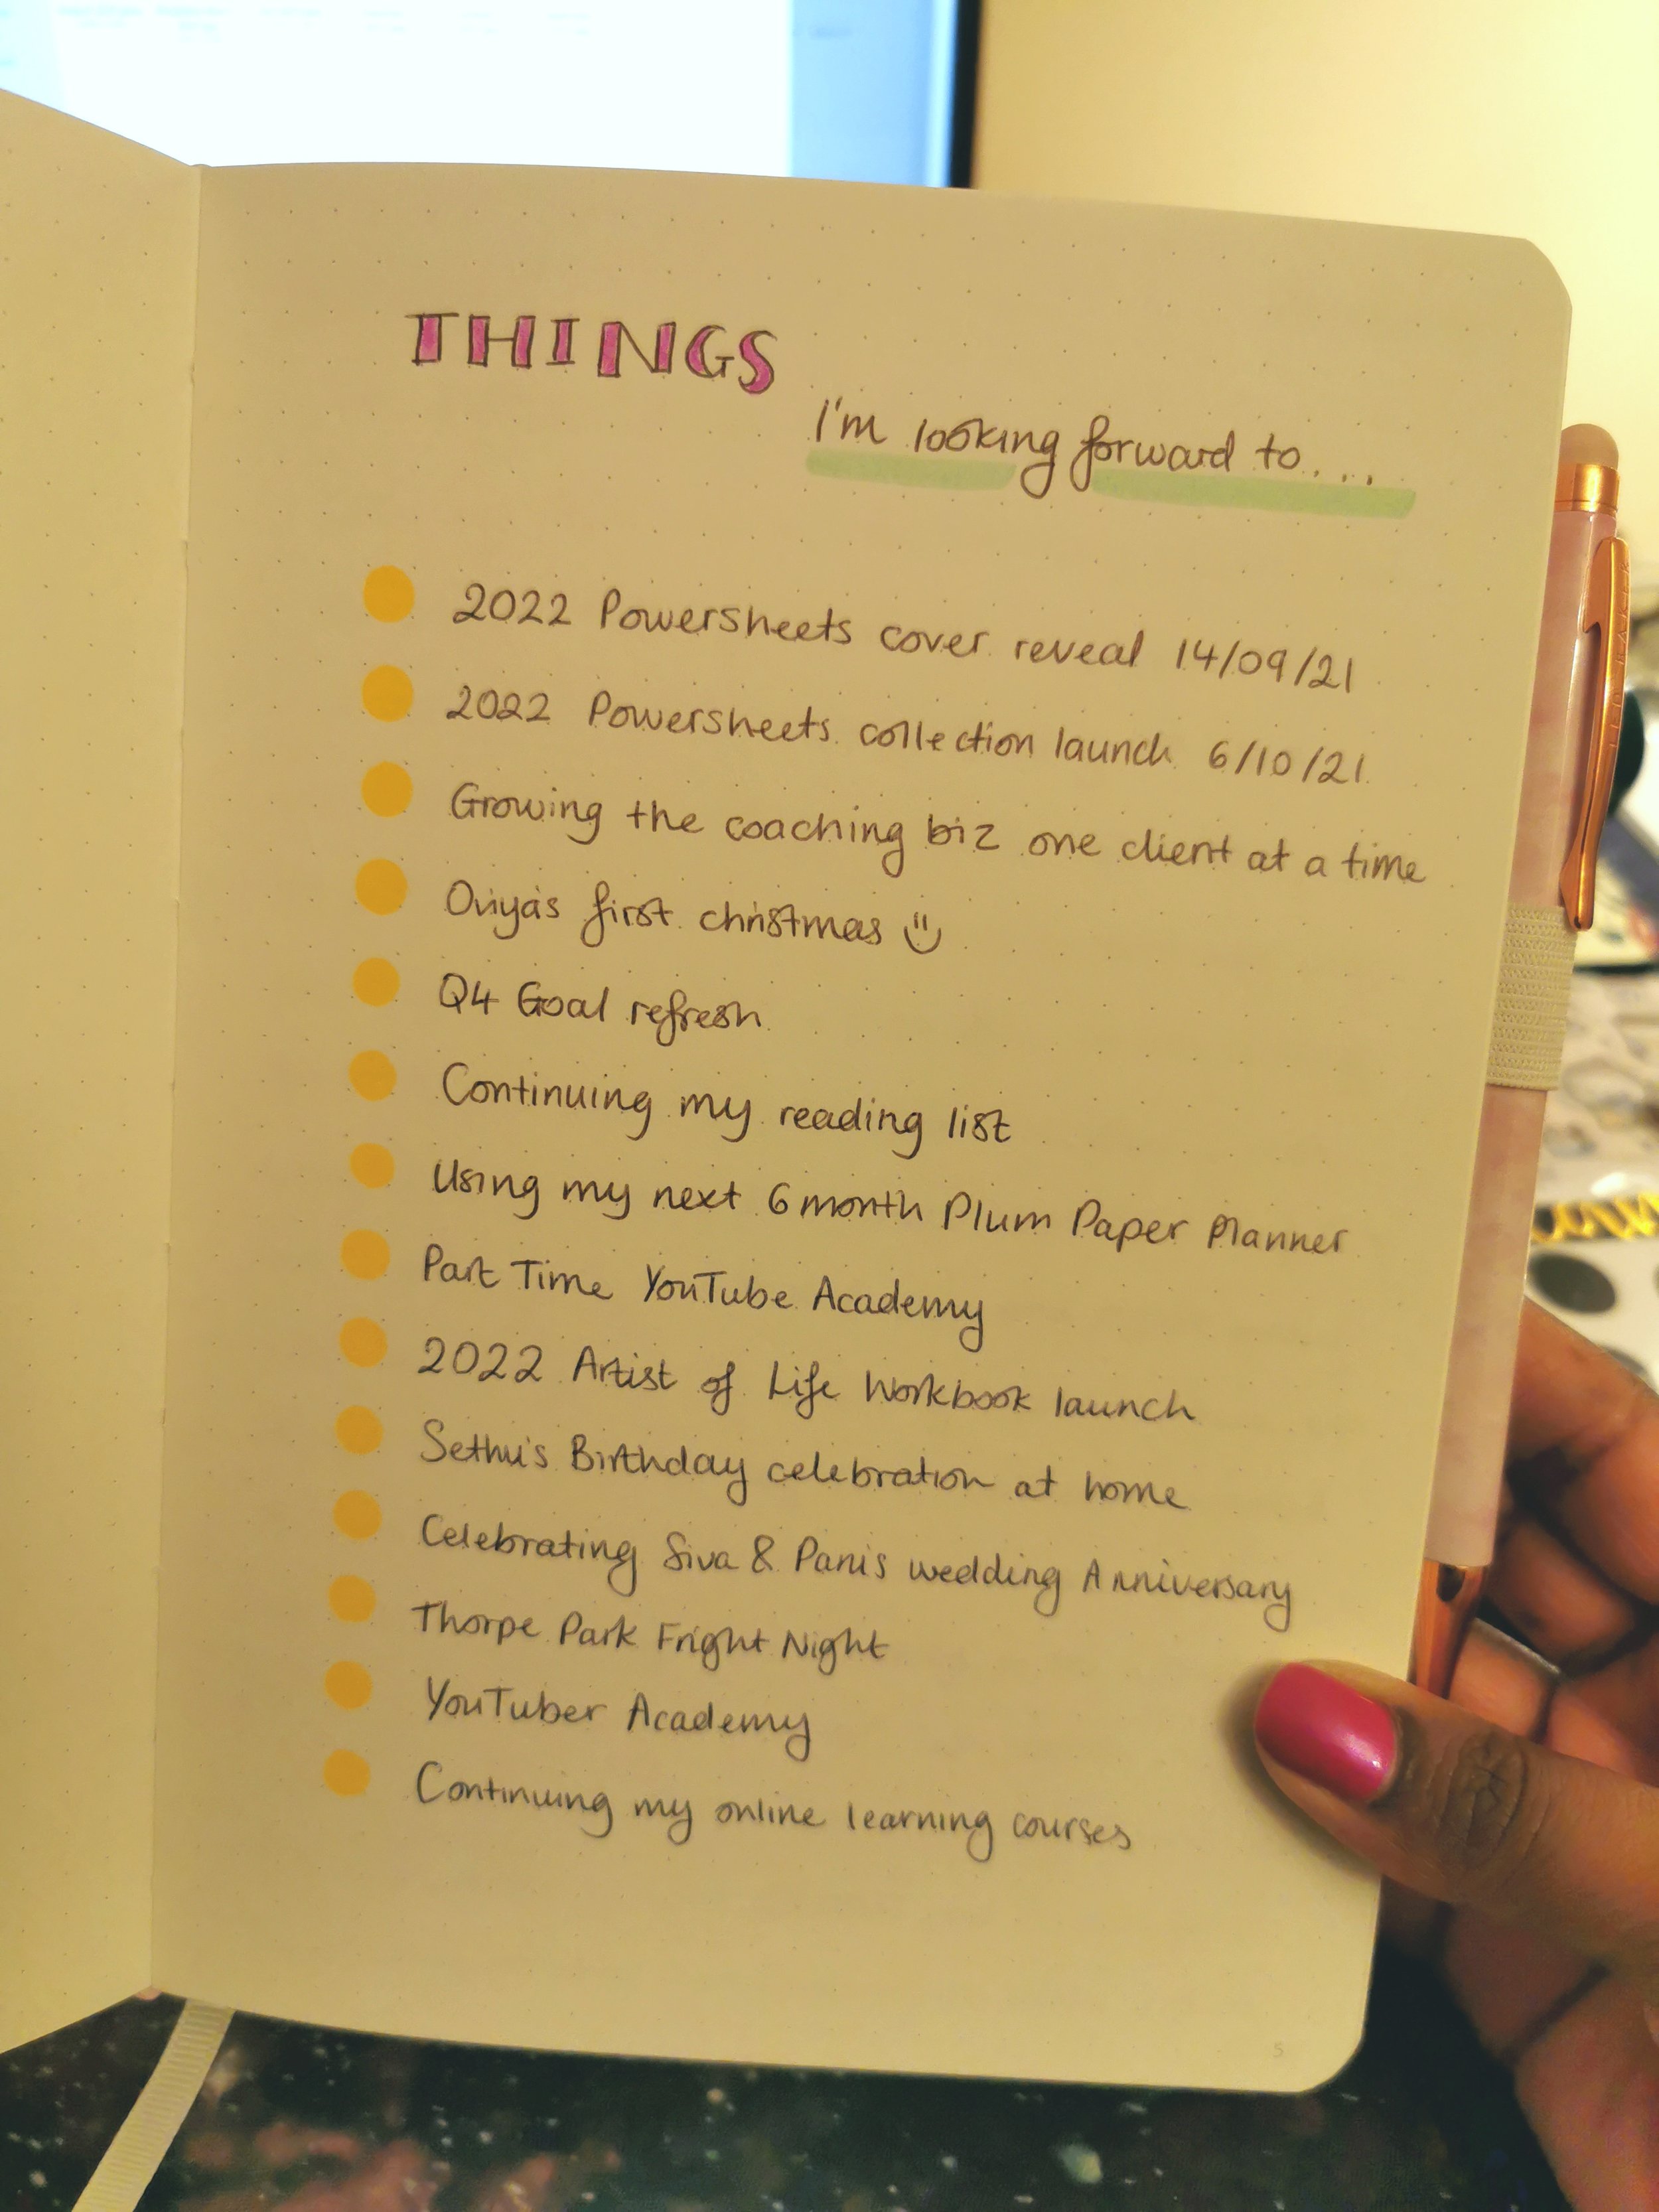 THINGS
I'm looking forward to....
2022 Powersheets cover reveal 14/09/21
2022 Powersheets collection launch 6/10/21
Growing the coaching biz one client at a time
Oviya's first christmas
Q4 Goal refresh
Continuing my reading list
Using my next 6 month Plum Paper Planner
Part Time YouTube Academy
2022 Artist of Life Workbook launch
Sethu's Birthday celebration at home
Celebrating Siva & Pani's wedding Anniversary
Thorpe Park Fright Night
YouTuber Academy
Continuing my online learning courses
5